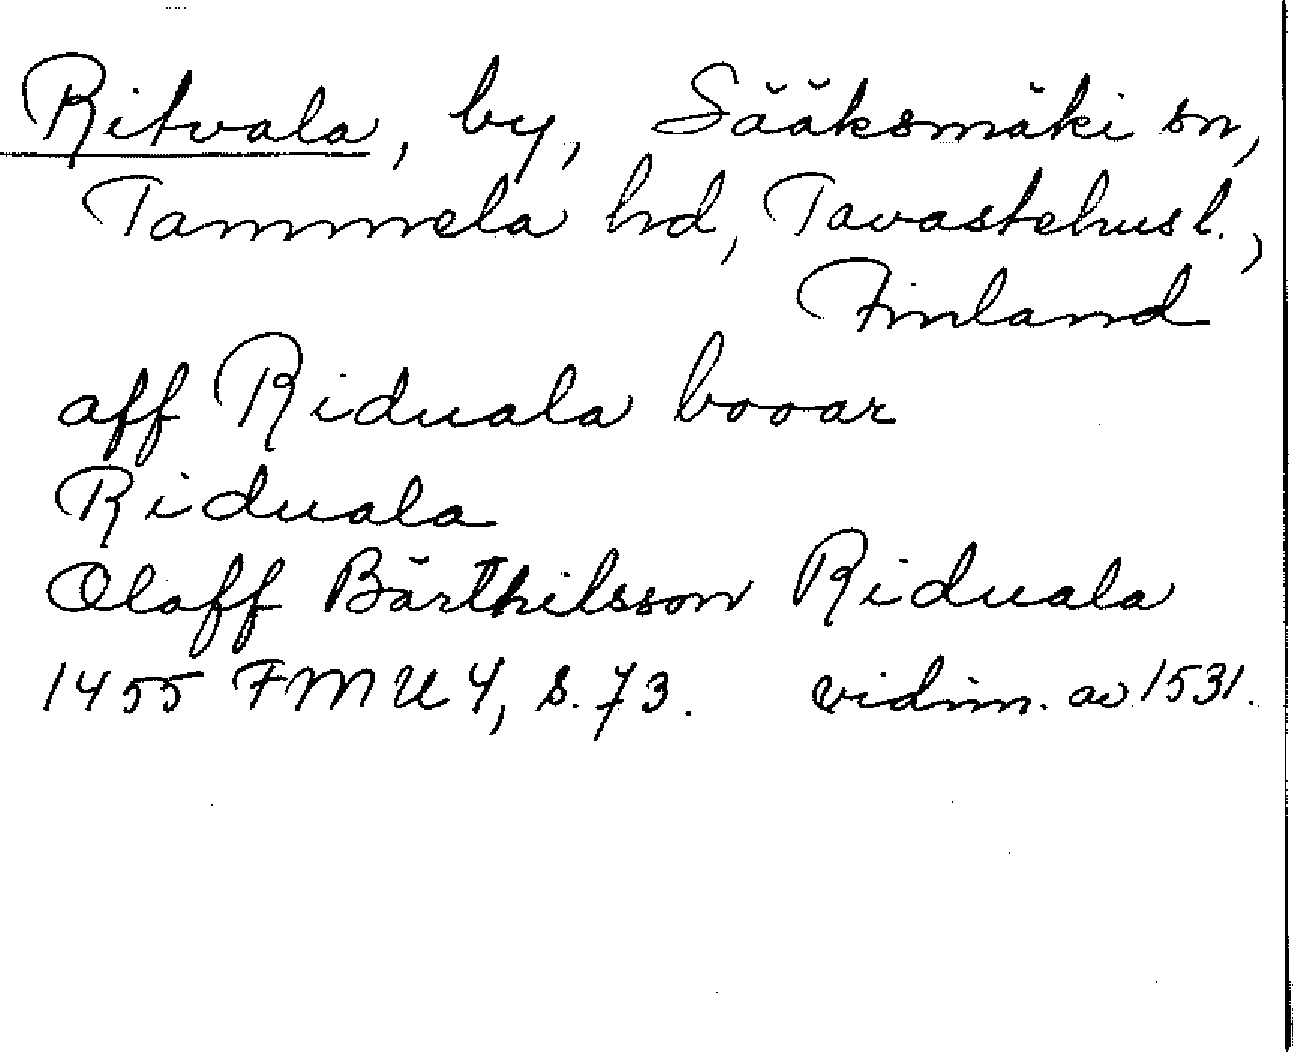 Ritvala, by, Sääksmäki sn,
Tammela hd, Tavastehus l.,
Finland
aff Riduala booar
Riduala
Olaff Bärthilsson Riduala
1455 FMU 4, s. 73. vidim. av 1531.